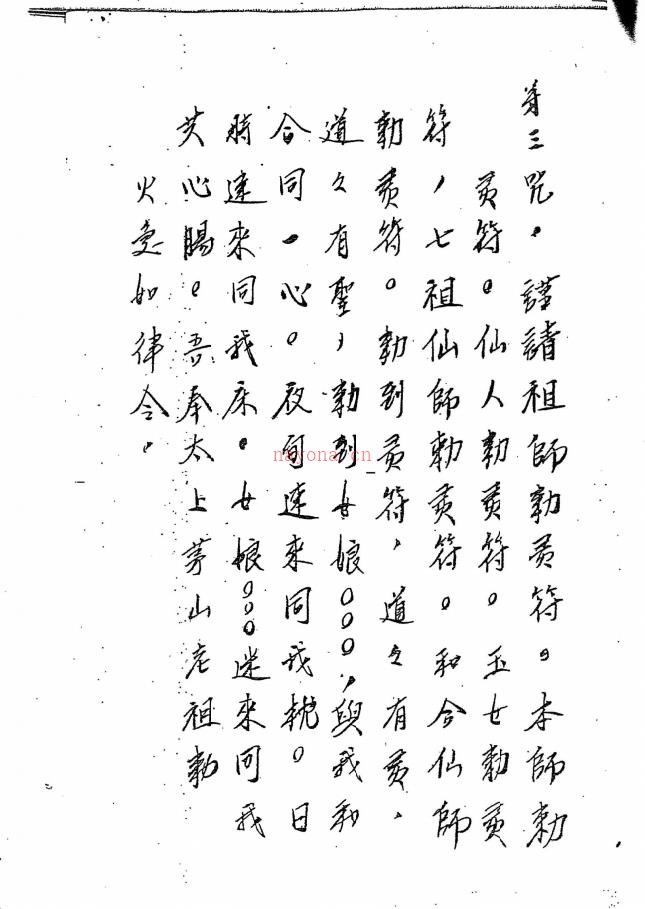 第三咒。謹請祖師勅灵符。本師勅
灵符。仙人勅灵符。玉女勅灵
符,七祖仙師勅灵符。和合仙師
勅灵符。勅到灵符,道々有灵,
道々有聖,勅到女娘〇〇〇,與我和
合同一心。夜間速來同我枕。日
時速來同我床。女娘〇〇〇迷來同我
共心腸。吾奉太上茅山老祖勅
火急如律令。
nayona.cn